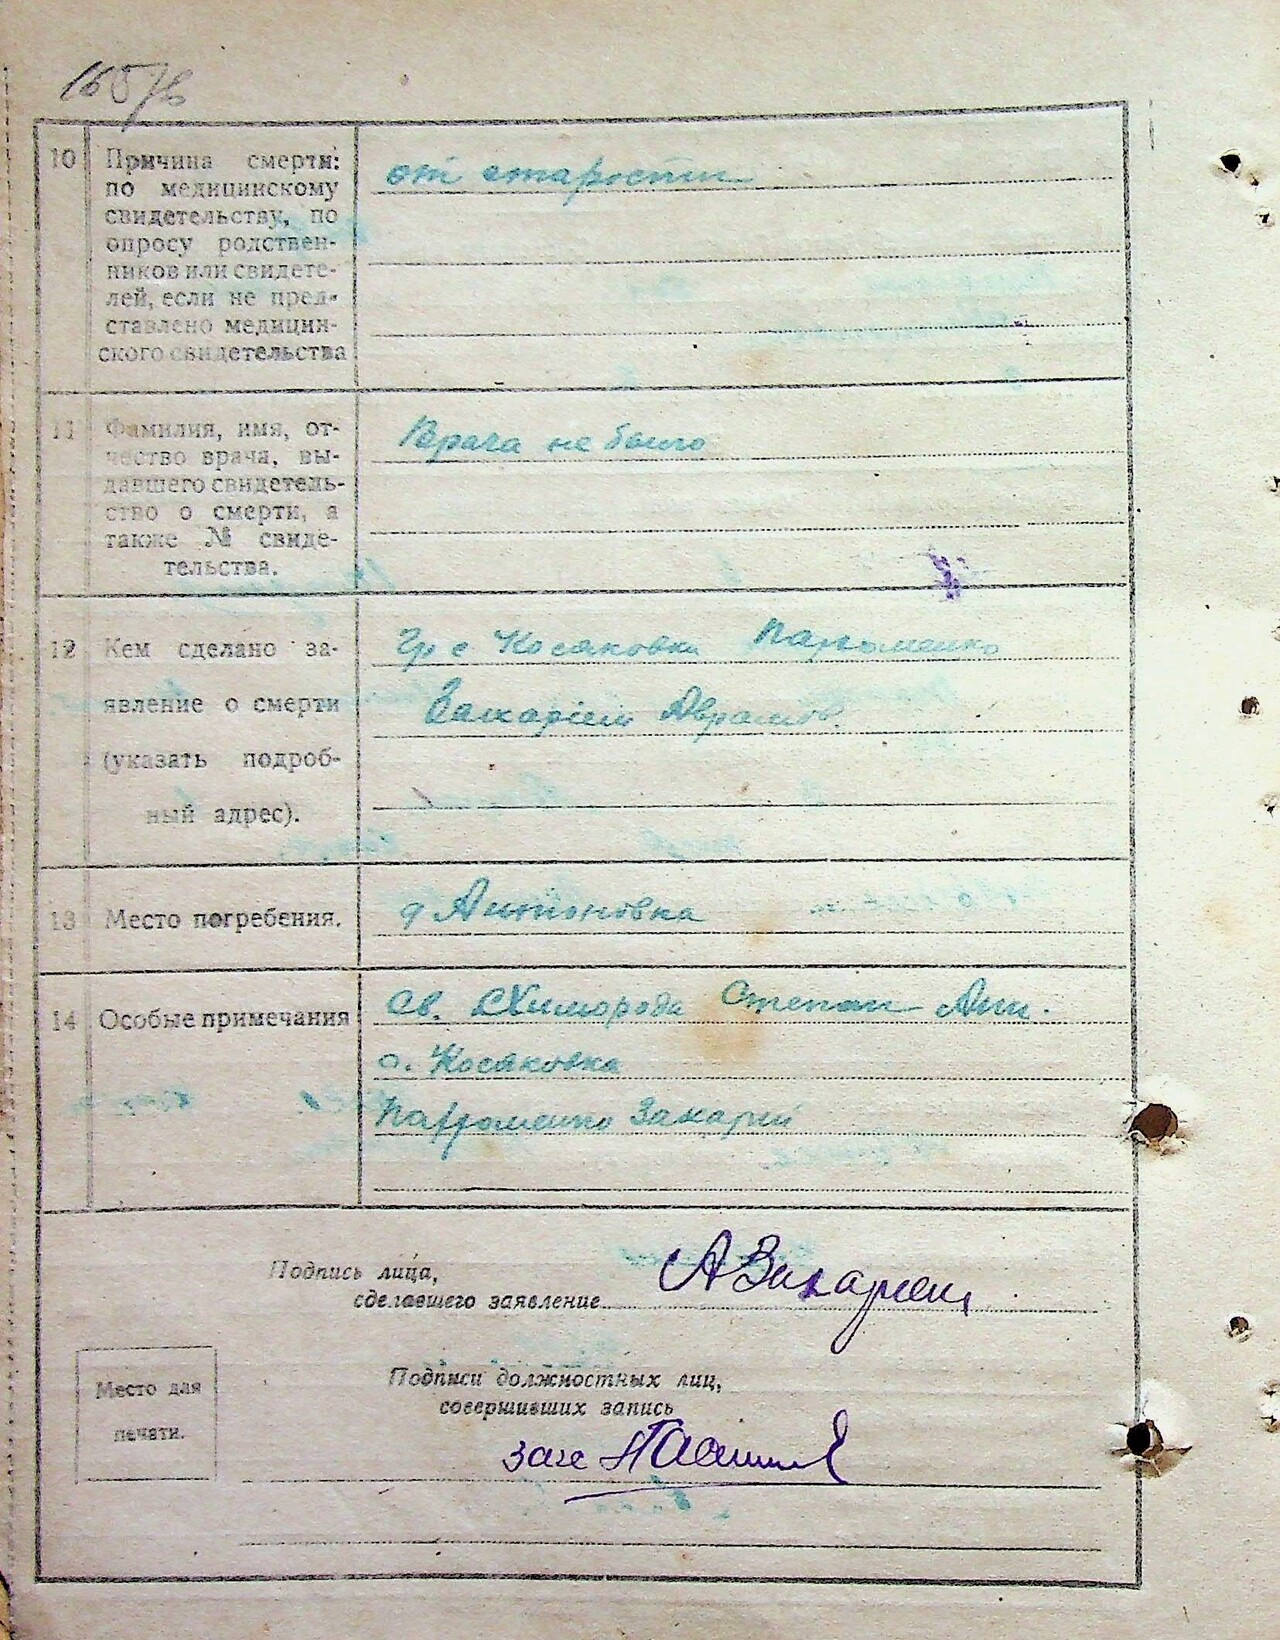 10 Причина смерти:
по медицинскому
свидетельству, по
опросу родствен-
ников или свидете-
лей, если не пред-
ставлено медицин-
ского свидетельства
от старости
11 Фамилия, имя, от-
чество врача, вы-
давшего свидетель-
ство о смерти, а
также № свиде-
тельства.
Врача не было
12 Кем сделано за-
явление о смерти
(указать подроб-
ный адрес).
Гр с Косяковки Пархоменко
Захарием Аврамов.
13 Место погребения.
д Антоновка
14 Особые примечания
Св. Степан
с. Косяковка
Пархоменко Захарий
Подпись лица,
сделавшего заявление
Место для
печати.
Подписи должностных лиц,
совершивших запись